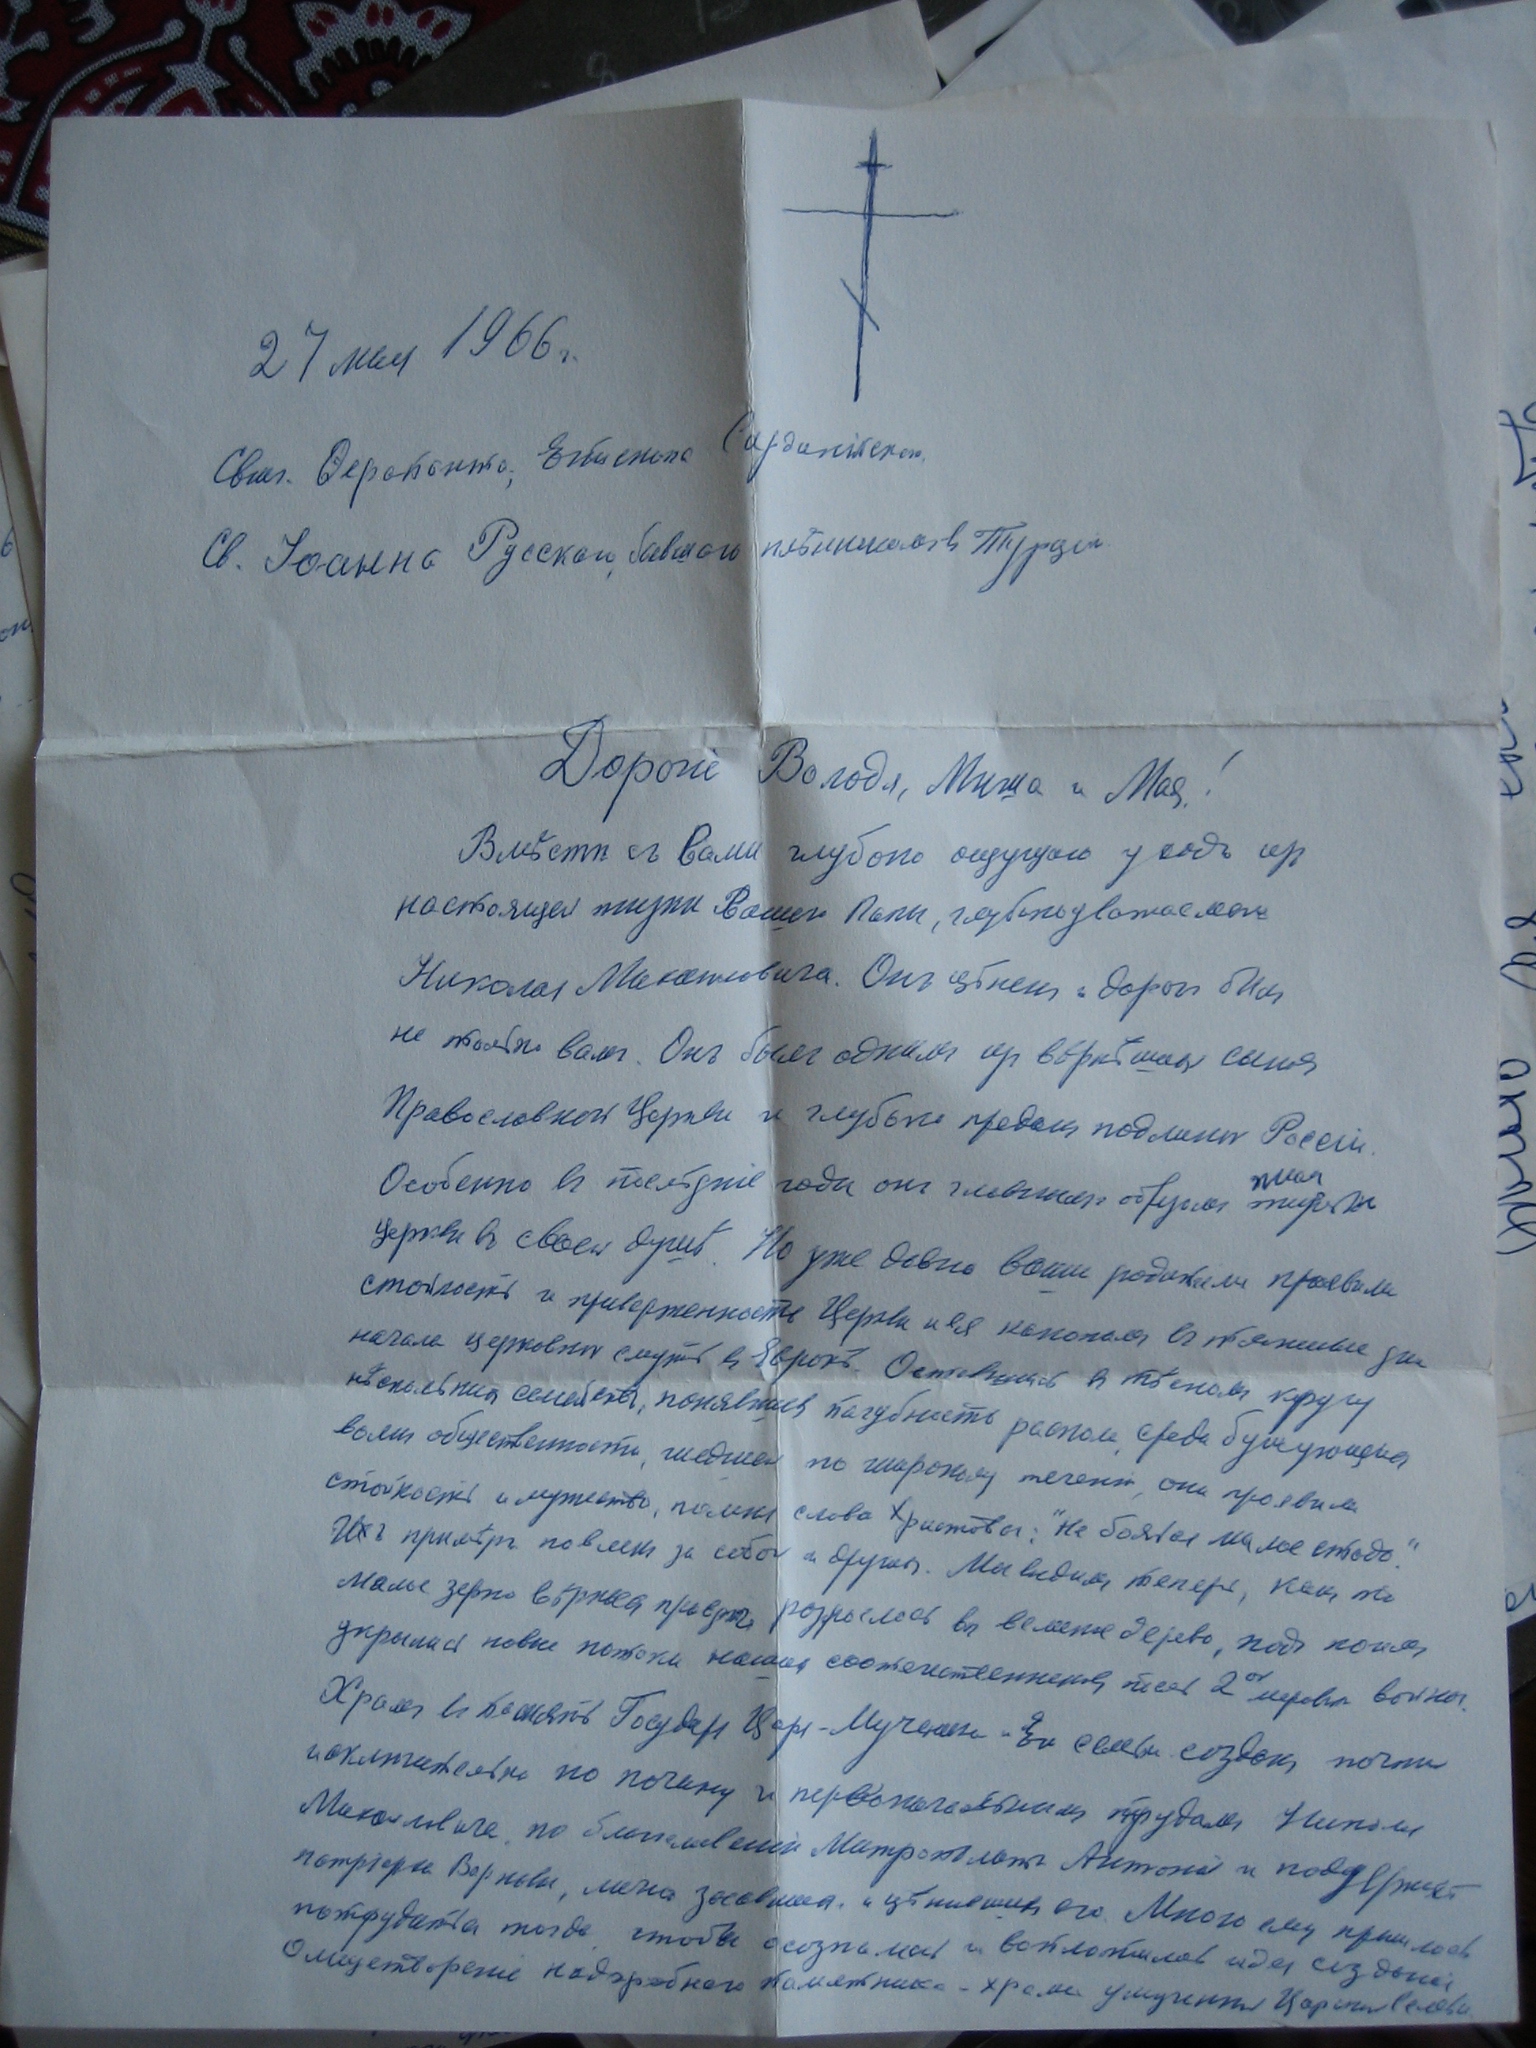 27 мая 1966 г.
Свмч. Ѳерапонта, Епископа Сардійскаго.
Св. Іоанна Русскаго, бывшаго плѣнникомъ в Турціи
Дорогіе Володя, Миша и Мая!
Вмѣстѣ съ Вами глубоко ощущаю уходъ из
настоящей жизни Вашего Папы, глубокоуважаемаго
Николая Михайловича. Онъ цѣнен и дорог был
не только вамъ. Онъ былъ однимъ из вѣрнѣйших сынов
Православной Церкви и глубоко предан подлинной Россіи.
Особенно в послѣдніе годы онъ главным образом жил
церкви в своей душѣ. Но уже давно ваши родители проявили
стойкость и приверженность Церкви и ея канонам в тяжкие дни
начала церковных смутъ в Европѣ. Оставшись в тѣсном кругу
нѣскольких семейств, понявших пагубность раскола, среди бушующих
волн общественности, шедшей по широкому теченію, они проявили
стойкость и мужество, помня слова Христовы: "Не бойся малое стадо."
Ихъ примѣръ повлек за собой и других. Мы видим теперь, как то
малое зерно вѣрных правдѣ, разрослось в великое дерево, подъ коим
укрылись новые потоки наших соотечественников послѣ 2ой мировой войны.
Храм в память Государя Царя-Мученика и Его семьи создан почти
исключительно по почину и первоначальным трудам Николая
Михайловича, по благословенію Митрополита Антонія и поддержкѣ
патріарха Варнавы, лично знавших и цѣнивших его. Много ему пришлось
потрудиться тогда, чтобы осозналась и воплотилась идея созданія
Олицетвореніе надгробного памятника-храма умученных Царской Семьи.